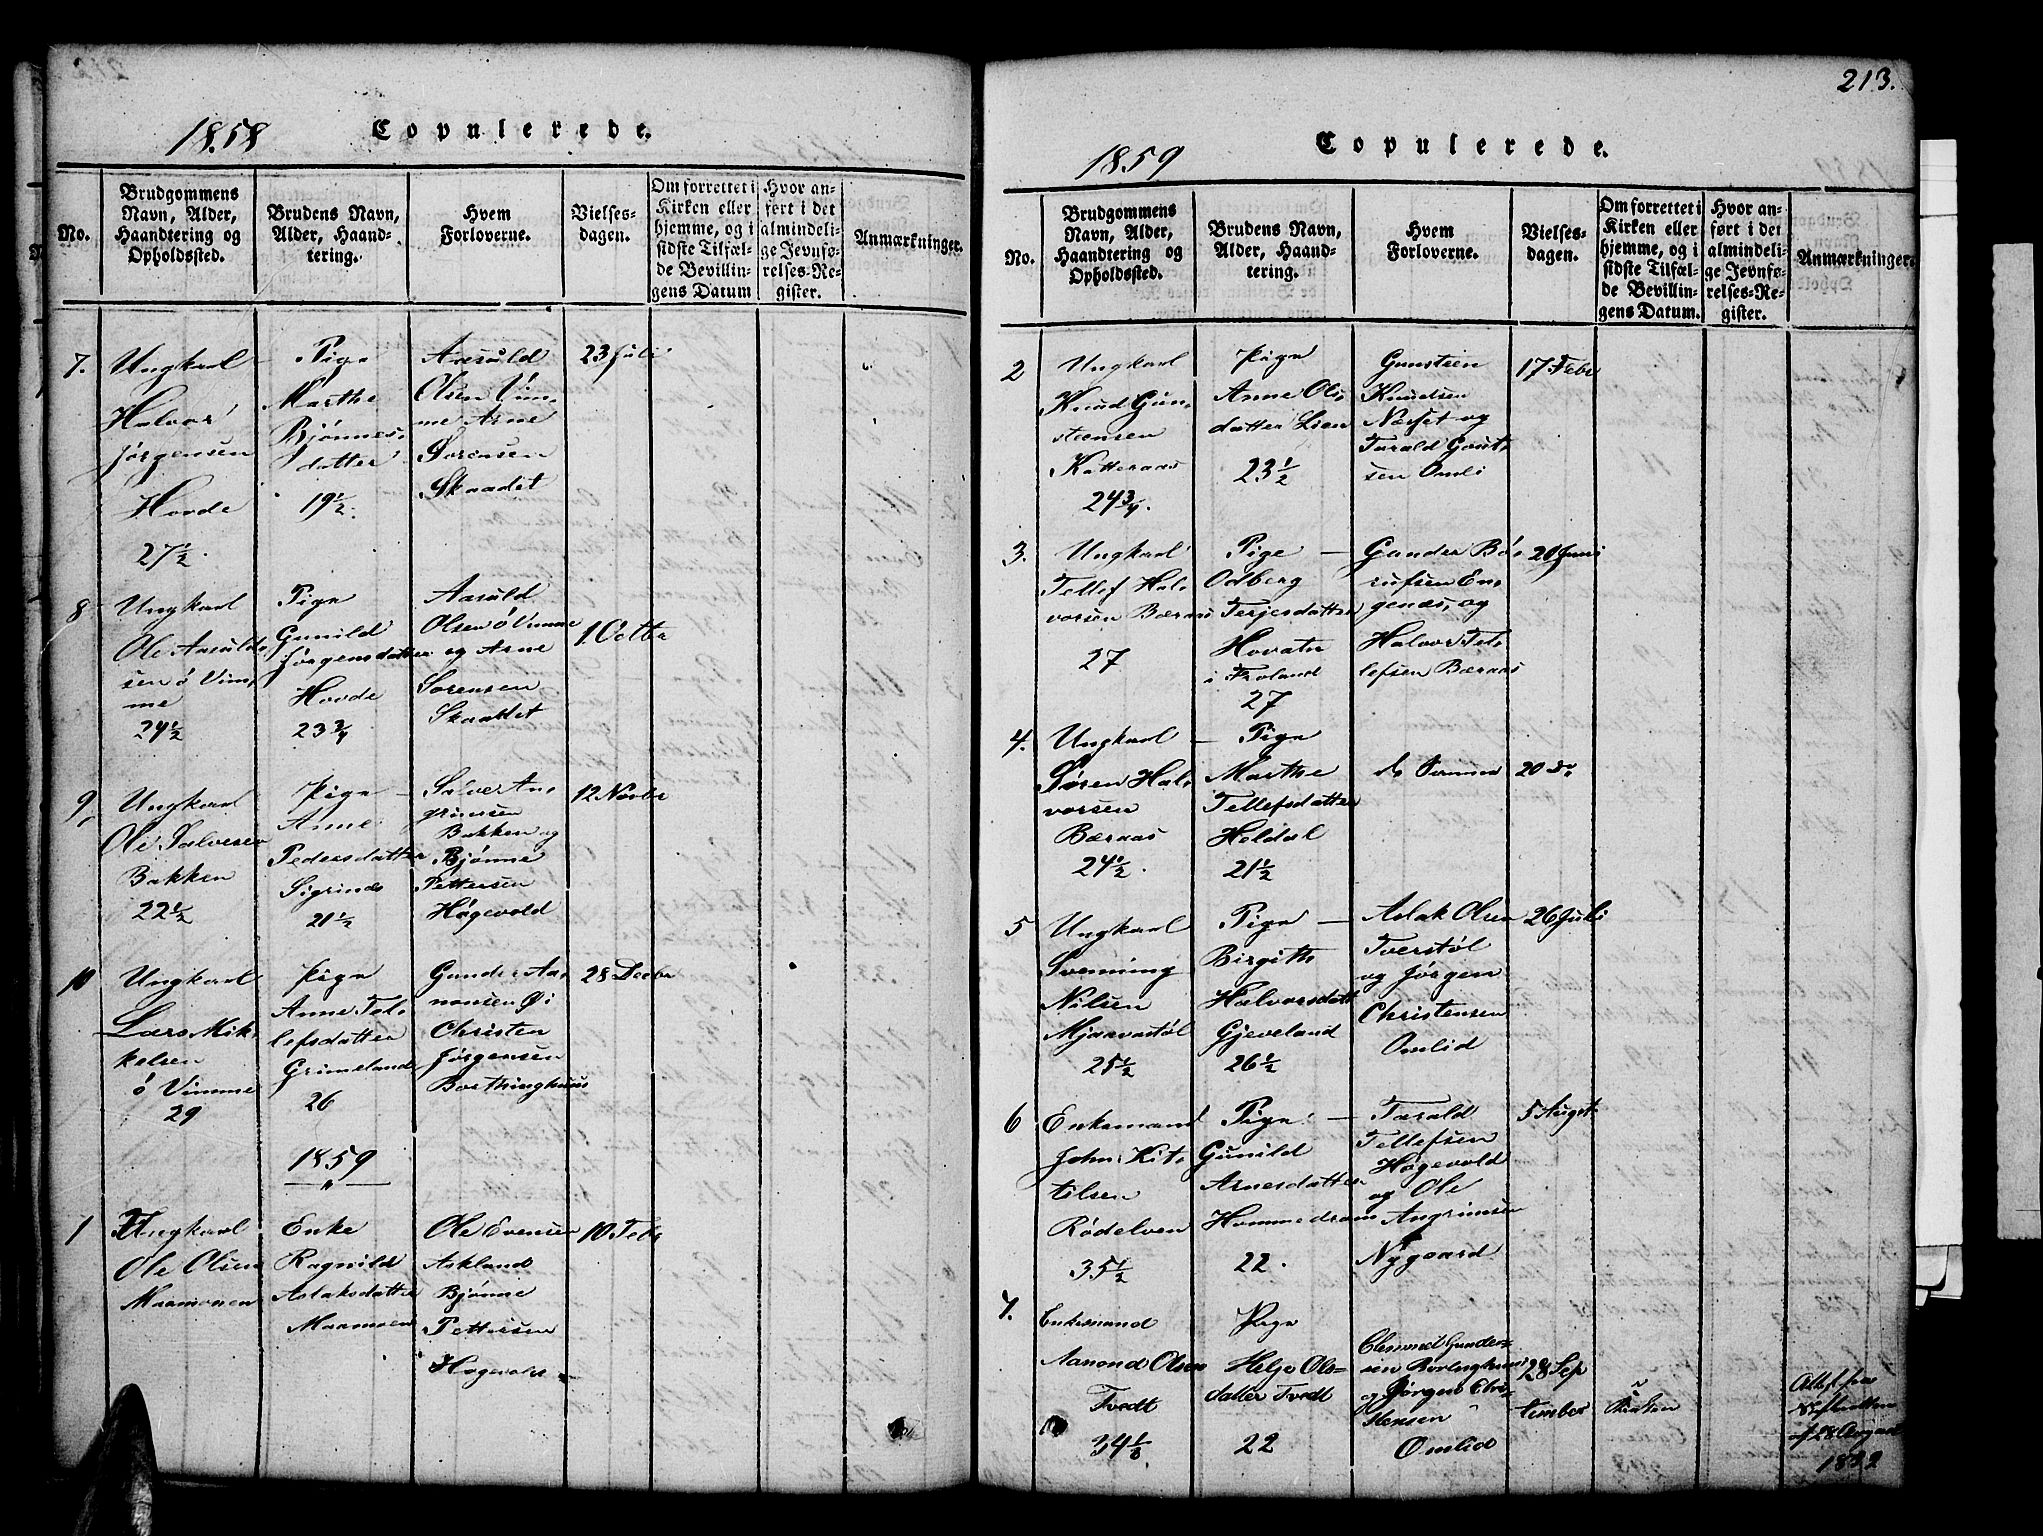 1858
Copulerede.
No.
Brudgommens
Navn, Alder,
Haandtering og
Opholdssted.
Brudens Navn,
Alder, Haand-
tering.
Hvem
Forloverne.
Vielses-
dagen.
Om forrettet i
Kirken eller
hjemme, og i
sidste Tilfæl-
de Bevillin-
gens Datum
Hvor an-
ført i det
almindeli-
ge Jevnfø-
relses-Re-
gister.
Anmærkninger.
7.
Ungkarl
Halvor
Jørgensen
Hovde
27½.
Pige
Marthe
Bjønnes-
datter
19½
Aasuld
Olsen Vim-
me Arne
Sørensen
Skaadet
23 Juli
8
Ungkarl
Ole Aasulds-
sen ö Vim-
me
24½
Pige
Gunild
Jørgensdatter
Hovde
23¾
Aasuld
Olsen ö Vimme
og Arne
Sørensen
Skaadet
1 Octbr
9,
Ungkarl
Ole Salvesen
Bakken
22½
Pige
Anne
Pedersdatter
Sigrinds
21½
Salve An-
grimsen
Bakken og
Bjønne
Pettersen
Høgevold
12 Novbr
10
Ungkarl
Lars Mik-
kelsen
ö Vimme
29
Pige
Anne Tel-
lefsdatter
Grimeland
26
Gunder Aa-
nonsen Øi
Christen
Jørgensen
Borthinghuus
28 Decbr
1859
1
Ungkarl
Ole Olsen
Maamonen
Enke
Ragnild
Aslaksdatter
Maamoen
Ole Evensen
Askland
Bjønne
Pettersen
Høgevold
10 Febr
213.
1859
Copulerede.
No.
Brudgommens
Navn, Alder,
Haandtering og
Opholdssted.
Brudens Navn,
Alder, Haand-
tering.
Hvem
Forloverne.
Vielses-
dagen.
Om forrettet i
Kirken eller
hjemme, og i
sidste Tilfæl-
de Bevillin-
gens Datum.
Hvor an-
ført i det
almindeli-
ge Jevnfø-
relses-Re-
gister.
Anmærkninger.
2
Ungkarl
Knud Gun-
steensen
Katteraas
24¾.
Pige
Anne Ols-
datter Lien
23½
Gunstein
Knudsen
Næsset og
Tarald Gout-
sen Omli
17 Febr
3.
Ungkarl
Tellef Hal-
vorsen Bæraas
27
Pige
Odberg
Terjesdatter
Hovatn
i Froland
27
Gunder Bø-
rufsen En-
genæs, og
Halvor Tel-
lefsen Bæraas
20 Juni
4.
Ungkarl
Søren Hal-
vorsen
Bæraas
24½.
Pige
Marthe
Tellefsdatter
Heldal
21½
de Samme
20 do
5
Ungkarl
Svenning
Nilsen
Mjaavastøl
25½
Pige
Birgith
Halvorsdatt
Gjeveland
26½
Aslak Olsen
Tverstøl
og Jørgen
Christensen
Omlid
26 Juli
6
Enkemand
John Kit-
telsen
Rødelven
35½
Pige
Gunild
Arnesdatter
Hommedram
22.
Tarald
Tellefsen
Høgevold
og Ole
Angrimsen
Nygaard
5 Augst
7.
Enkemand
Aanond Olsen
Tvedt
Pige
Helje Ols-
datter Tvedt
22
Clemmed Gunder-
sen Bortinghuus
og Jørgen Chri-
stensen
Omlid
28 Sep
tember
i
Kirken
1832